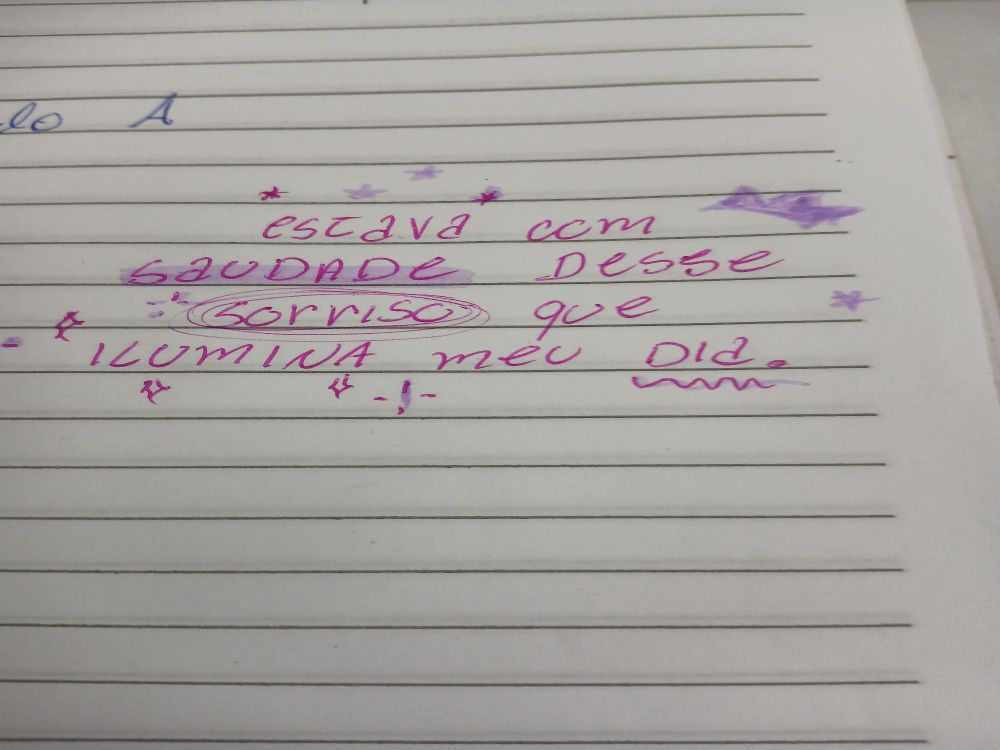 lo A
estava com
saUDADe Desse
sorriso que
ILUMINA meu DIa.